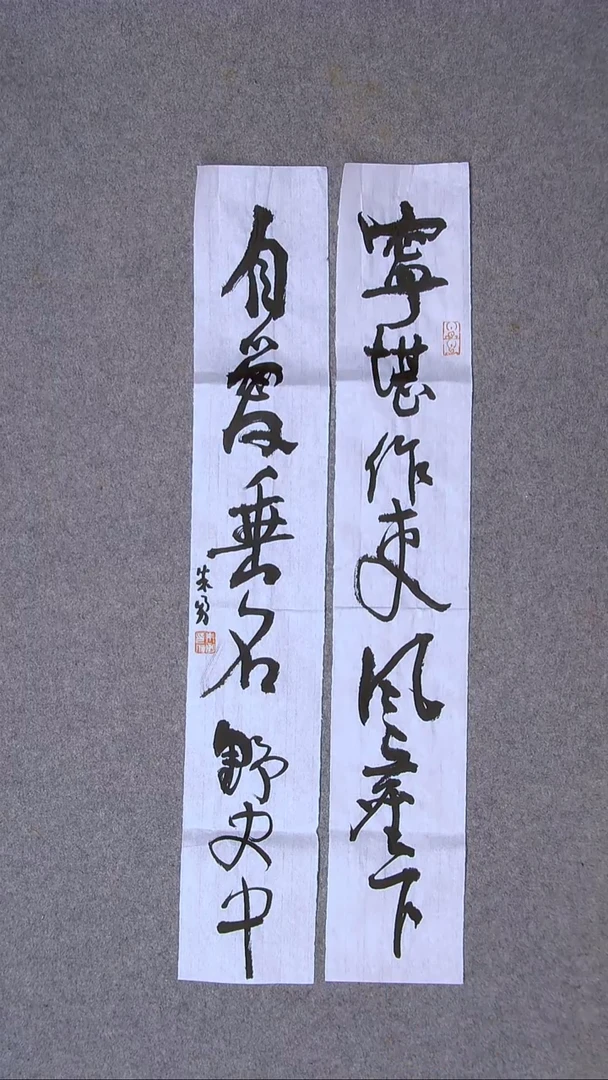 寧堪作吏風塵下
自愛垂名野史中
朱勇